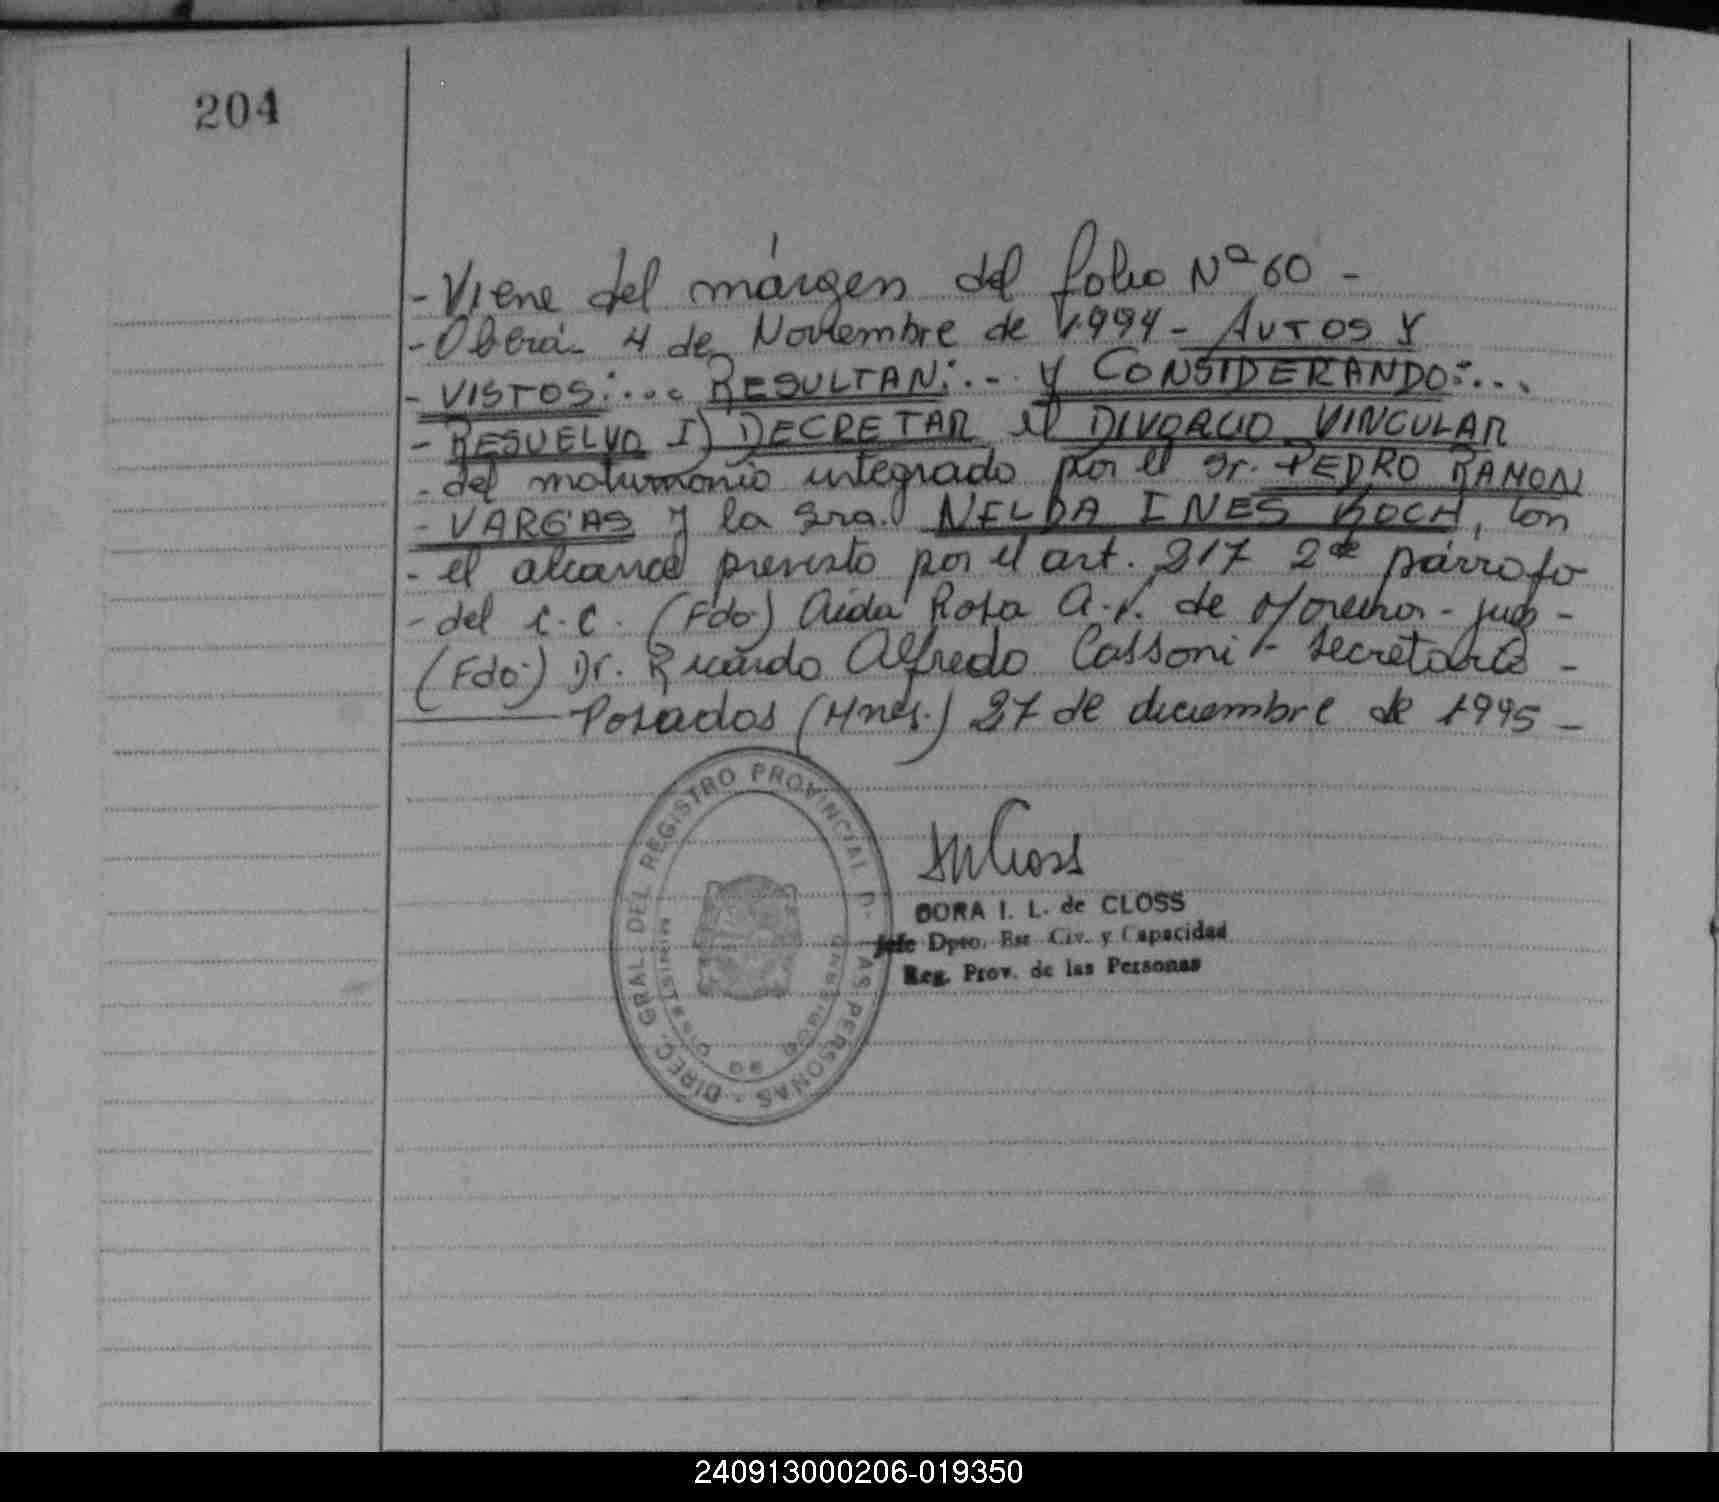 204
- Viene del márgen del folio Nº 60 -
- Oberá - 4 de Noviembre de 1.994 - AUTOS Y
- VISTOS:... RESULTAN:... Y CONSIDERANDO:...
- RESUELVO I) DECRETAR el DIVORCIO VINCULAR
- del matrimonio integrado por el Sr. PEDRO RAMON
- VARGAS y la Sra. NELDA INES KOCH, con
- el alcance previsto por el art. 217 2do párrafo
- del C.C. (Fdo.) Aida Rosa de - Juez -
(Fdo.) Dr. Ricardo Alfredo Cassoni - Secretario -
Posadas (Mnes.) 27 de diciembre de 1995 -
DIREC. GRAL. DEL REGISTRO PROVINCIAL D. LAS PERSONAS
MINISTERIO DE GOBIERNO
DORA I. L. de CLOSS
Jefe Dpto. Est. Civ. y Capacidad
Reg. Prov. de las Personas
240913000206-019350